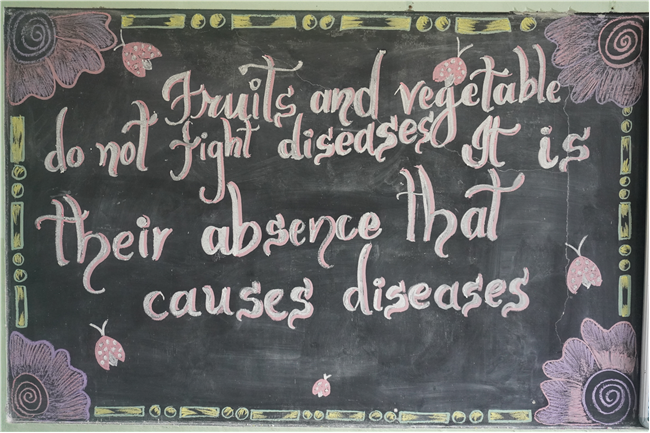 Fruits and vegetable
do not fight diseases It is
their absence that
causes diseases